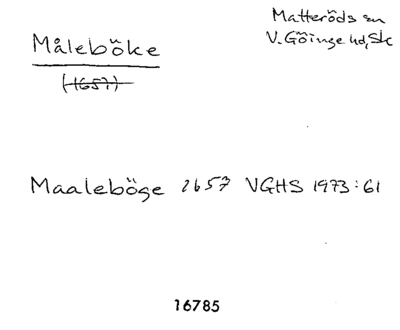 Måleböke
(1657)
Matteröds sn
V. Göinge hd, Sk
Maaleböge 1657 VGHS 1973:61
16785